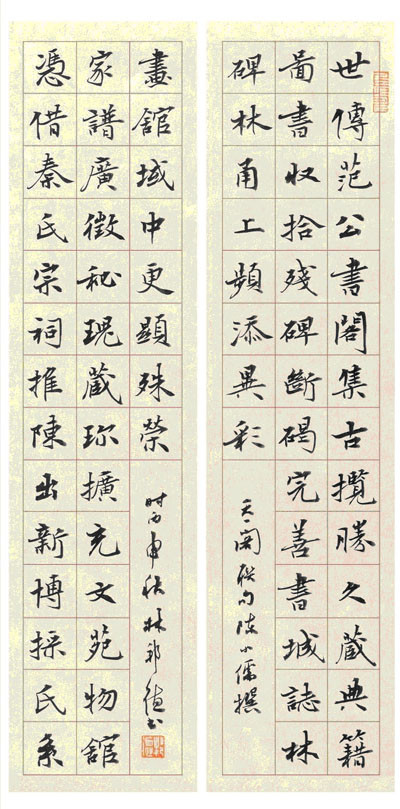 世傳范公書閣集古攬勝久藏典籍
啚書収拾殘碑斷碣完善書城誌林
碑林甬上頻添異彩
天一阁联句陈小儒撰
憑借秦氏宗祠推陳出新博採氏系
家譜廣徵秘瑰藏珍擴充文苑物館
畫館域中更顯殊榮
时丙申秋林邦德书